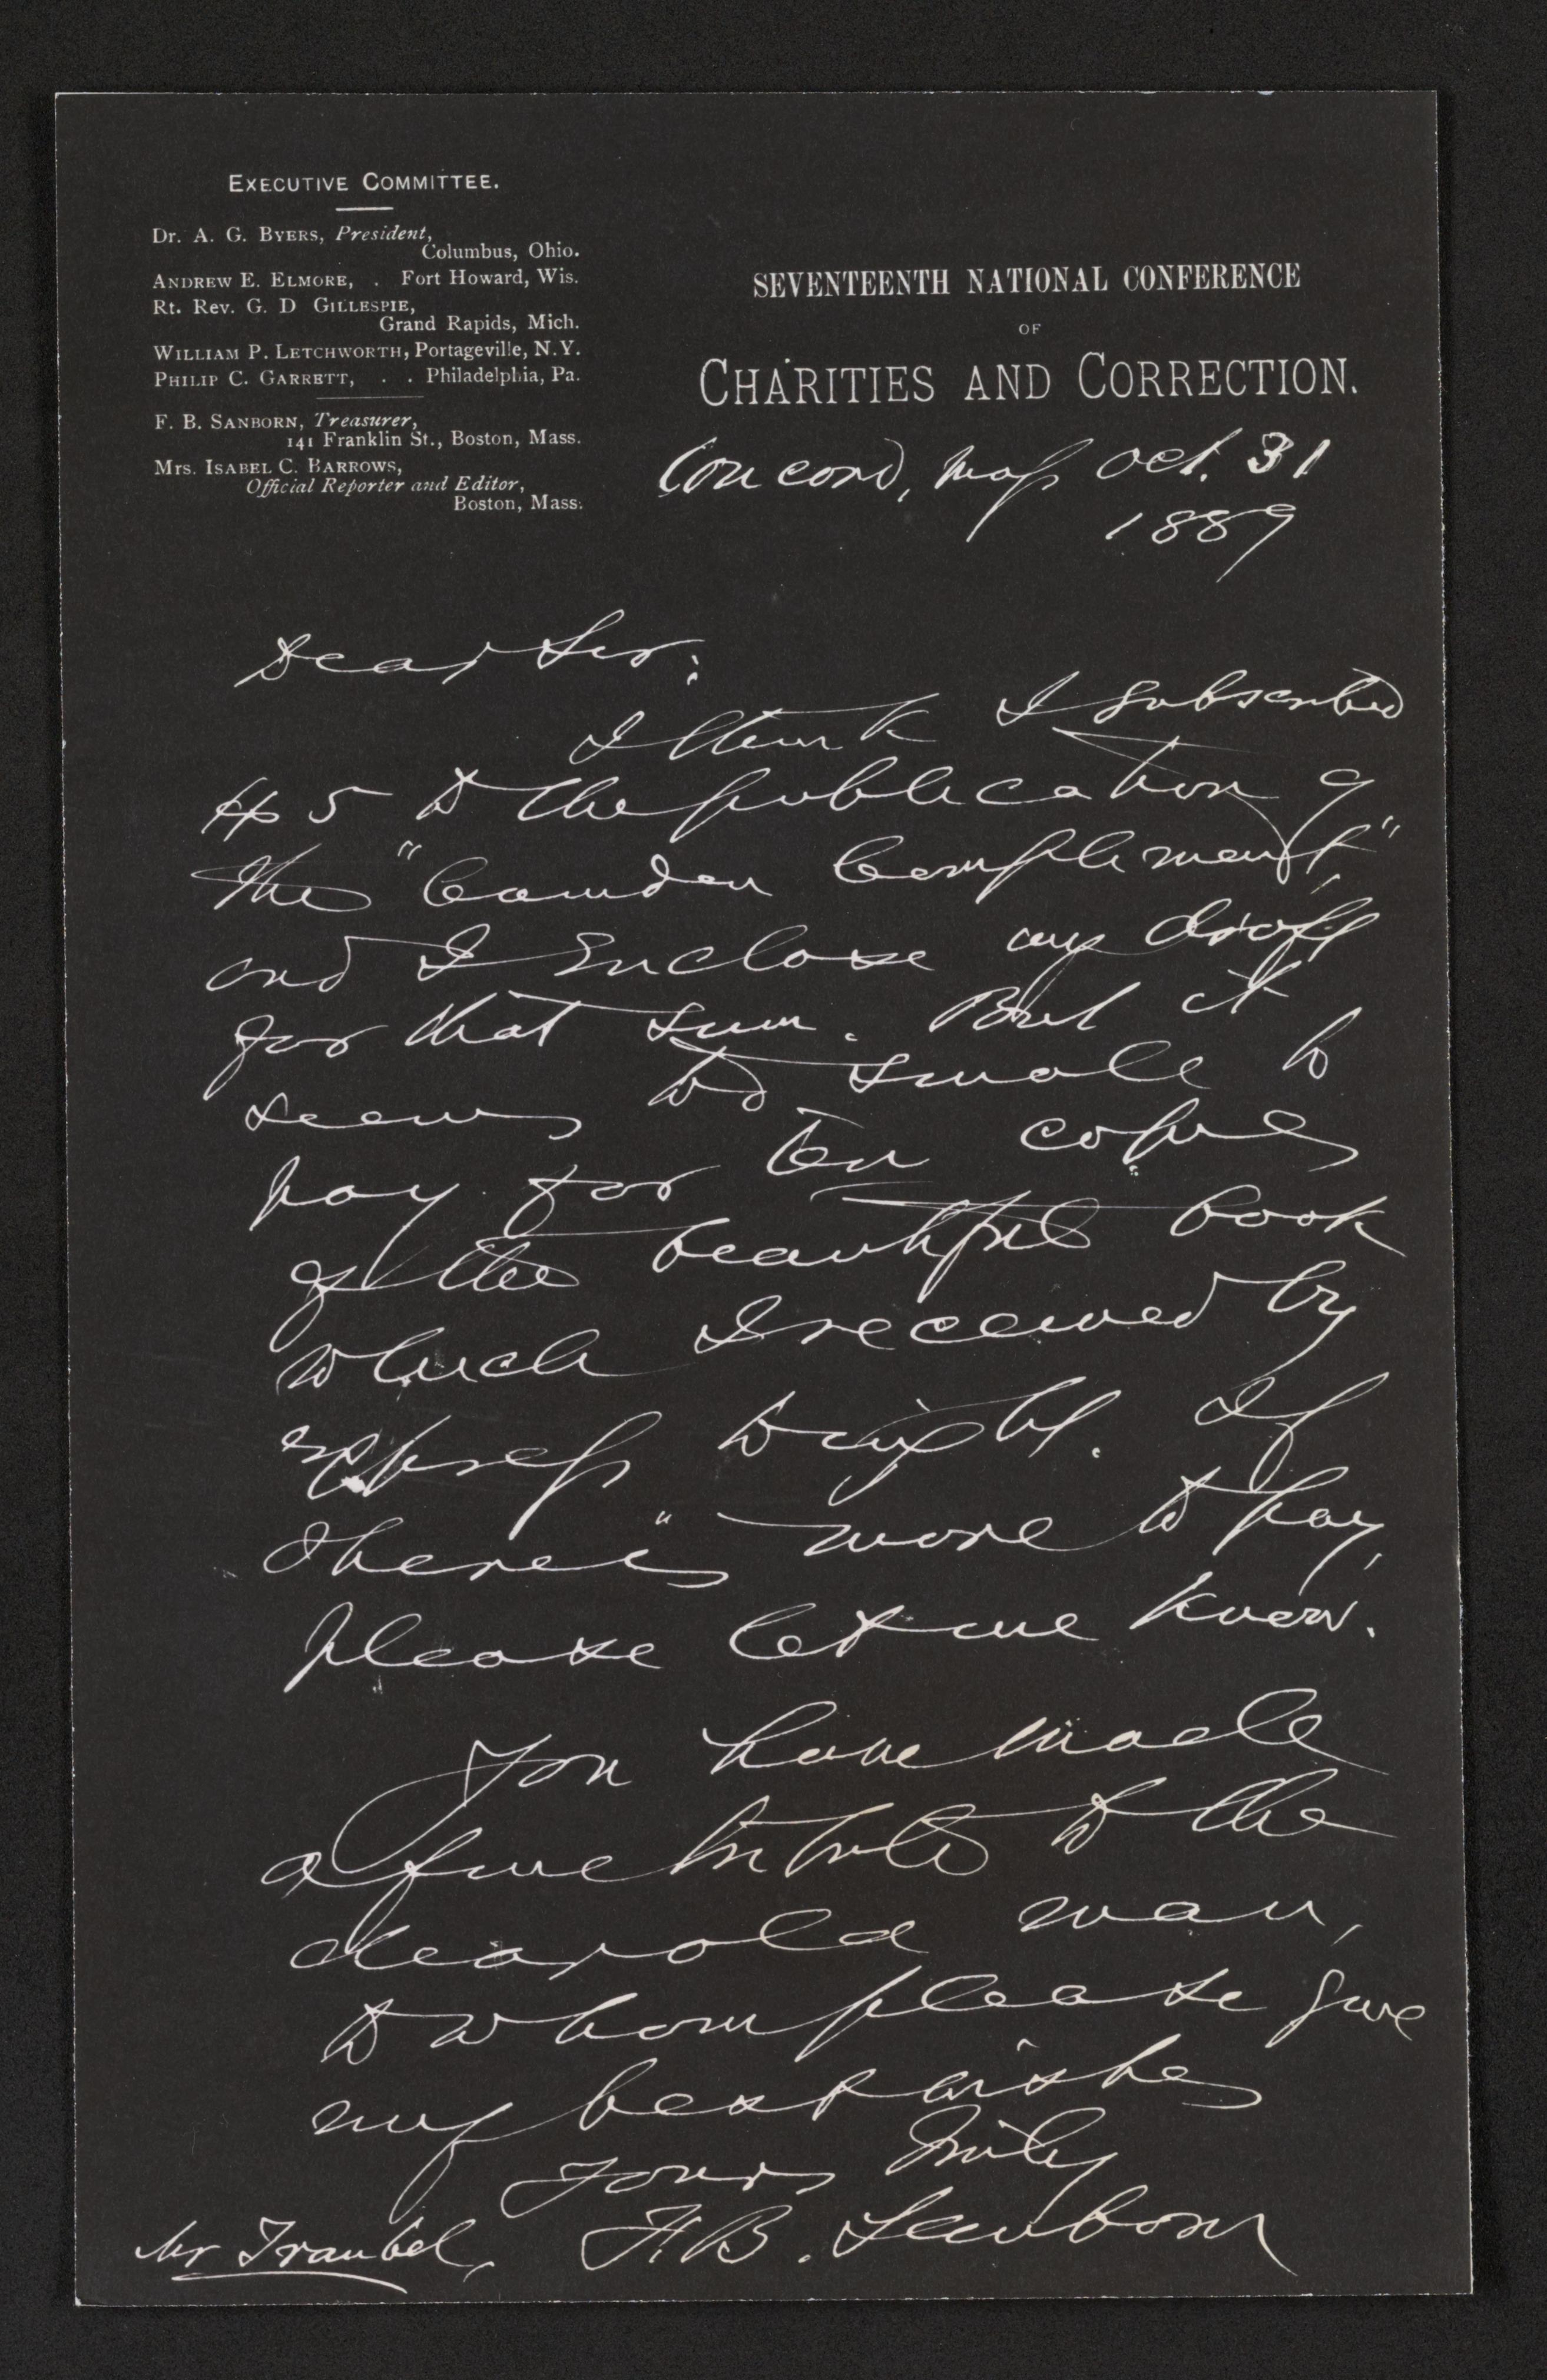 EXECUTIVE COMMITTEE.
Dr. A. G. BYERS, President,
Columbus, Ohio.
ANDREW E. ELMORE, . Fort Howard, Wis.
Rt. Rev. G. D GILLESPIE,
Grand Rapids, Mich.
WILLIAM P. LETCHWORTH, Portageville, N.Y.
PHILIP C. GARRETT, . . Philadelphia, Pa.
F. B. SANBORN, Treasurer,
141 Franklin St., Boston, Mass.
Mrs. ISABEL C. BARROWS,
Official Reporter and Editor,
Boston, Mass.
SEVENTEENTH NATIONAL CONFERENCE
OF
CHARITIES AND CORRECTION.
Concord, Mass Oct. 31
1889
Dear Sir:
I think I subscribed
$5 to the publication of
the "Camden Compliment"
and I enclose my draft
for that sum. But it
seems too small to
pay for ten copies
of the beautiful book
which I received by
express to night. If
there is more to pay,
please let me know.
You have made
a fine tribute to the
dear old man,
to whom please give
my best wishes
Yours truly
F. B. Sanborn
Mr Traubel.